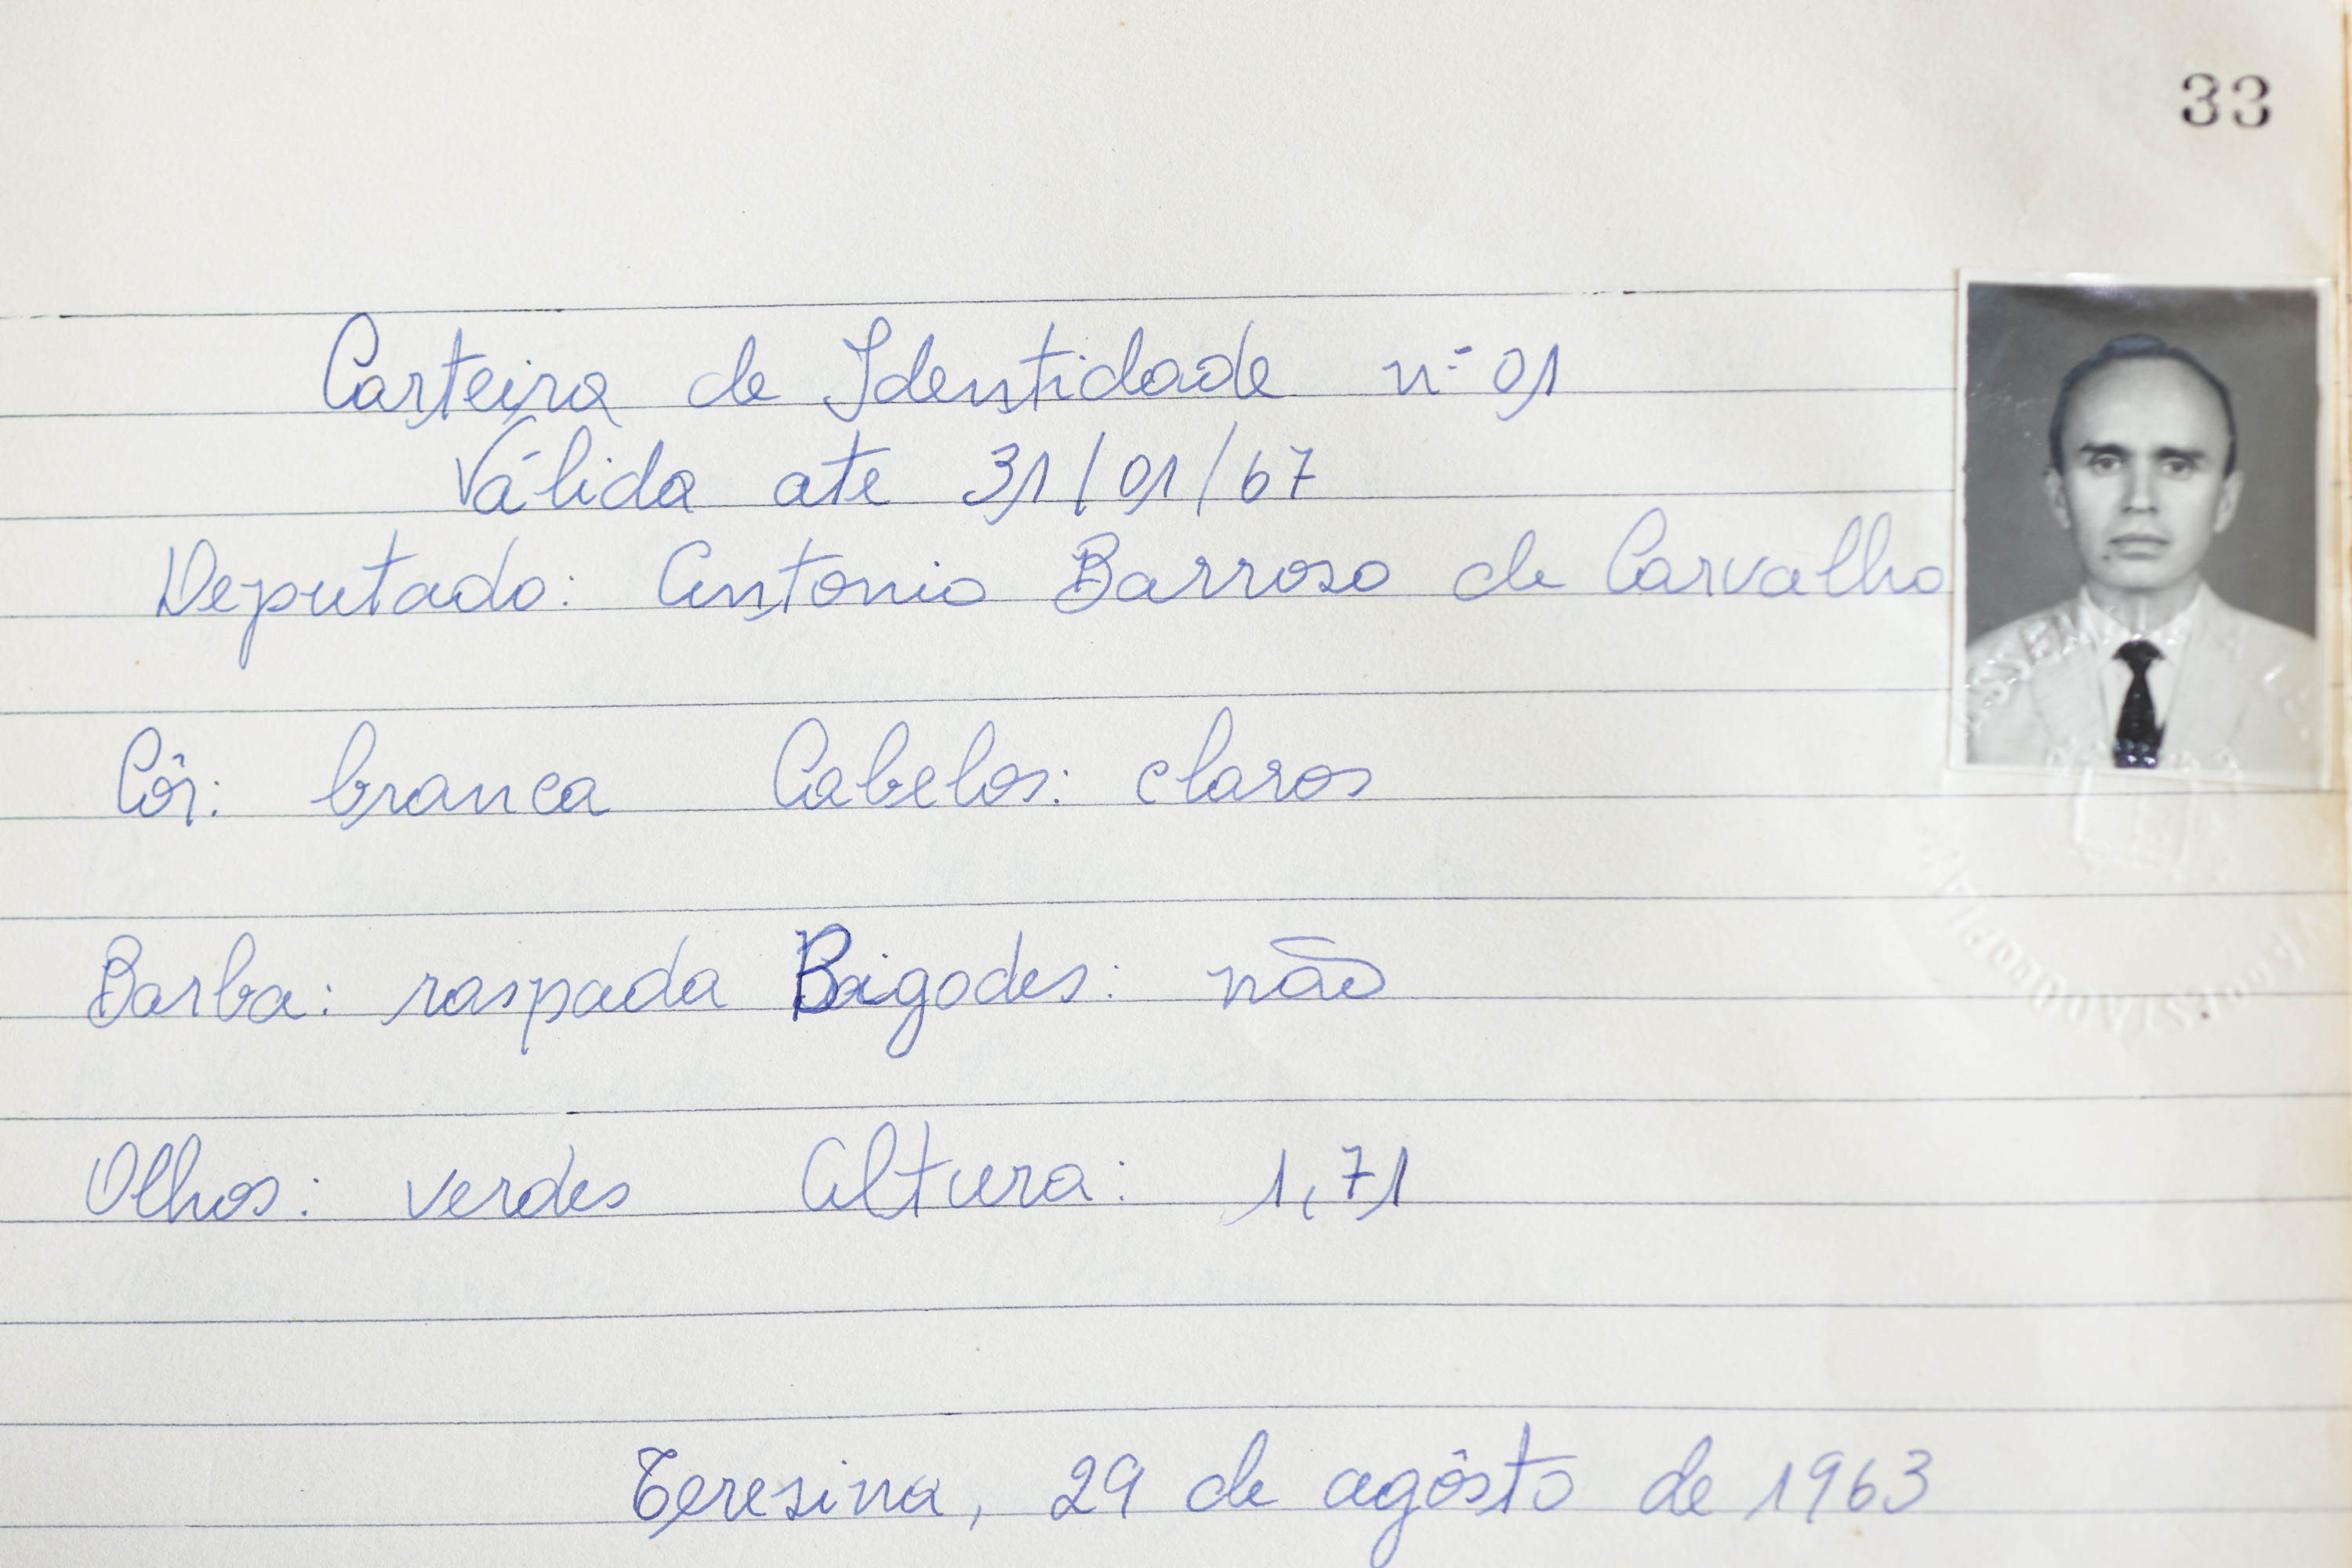 33
Carteira de Identidade nº 01
Válida ate 31/01/67
Deputado: Antonio Barroso de Carvalho
Côr: branca Cabelos: claros
Barba: raspada Bigodes: não
Olhos: verdes Altura: 1,71
Teresina, 29 de agôsto de 1963